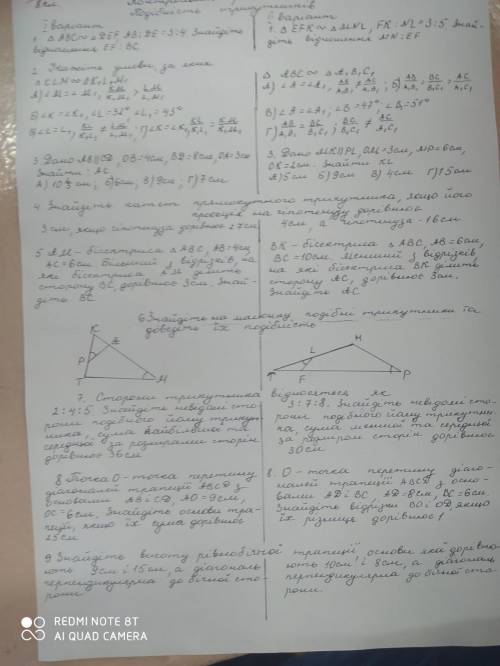 8 кл.
Подібність трикутників
I варіант
II варіант
1. △ABC ∾ △DEF, AB:DE=3:4. Знайдіть
відношення EF:BC.
1. △EFK ∾ △MNL, FK:NL=3:5. Знай-
діть відношення MN:EF
2. Укажіть умови, за яких
△KLM ∾ △K₁L₁M₁
△ABC ∾ △A₁B₁C₁
3. Дано AB||CD, OB=4см, BD=8см, OA=3см
Знайти: AC.
А) 10 см; Б) 6см; В) 9см; Г) 7см
3. Дано MK||PL, OM=3см, MP=6см,
OK=2см. Знайти KL
А) 5см Б) 9см В) 4см Г) 1,5см
4 Знайдіть катет прямокутного трикутника, якщо його
проєкція на гіпотенузу дорівнює
3см, якщо гіпотенуза дорівнює 27см
4см, а гіпотенуза - 16см
5 AM - бісектриса △ABC, AB=4см,
AC=6см. Більший з відрізків, на
які бісектриса AM ділить
сторону BC, дорівнює 3см. Знай-
діть BC
BK - бісектриса △ABC, AB=6см,
BC=10см. Менший з відрізків,
на які бісектриса BK ділить
сторону AC, дорівнює 3см.
Знайдіть AC
6 Знайдіть на малюнку подібні трикутники та
доведіть їх подібність
K
E
P
T
M
H
L
T
F
P
7. Сторони трикутника
відносяться як
2:4:5. Знайдіть невідомі сто-
рони подібного йому трикут-
ника, сума найбільшої та
середньої за розмірами сторін
дорівнює 36см
3:7:8. Знайдіть невідомі сто-
рони подібного йому трикутни-
ка, сума меншої та середньої
за розміром сторін дорівнює
30см
8 Точка O - точка перетину
діагоналей трапеції ABCD з
основами AB і CD, AO=9см,
OC=6см. Знайдіть основи тра-
пеції, якщо їх сума дорівнює
25см
8. O - точка перетину діаго-
налей трапеції ABCD з осно-
вами AD і BC, AD=8см, BC=6см
Знайдіть відрізки BO і OD, якщо
їх різниця дорівнює 1
9 Знайдіть висоту рівнобічної трапеції, основи якої дорівню-
ють 9см і 15см, а діагональ
перпендикулярна до бічної сто-
рони
ють 10см і 8см, а діагональ
перпендикулярна до бічної сто-
рони.
REDMI NOTE 8T
AI QUAD CAMERA